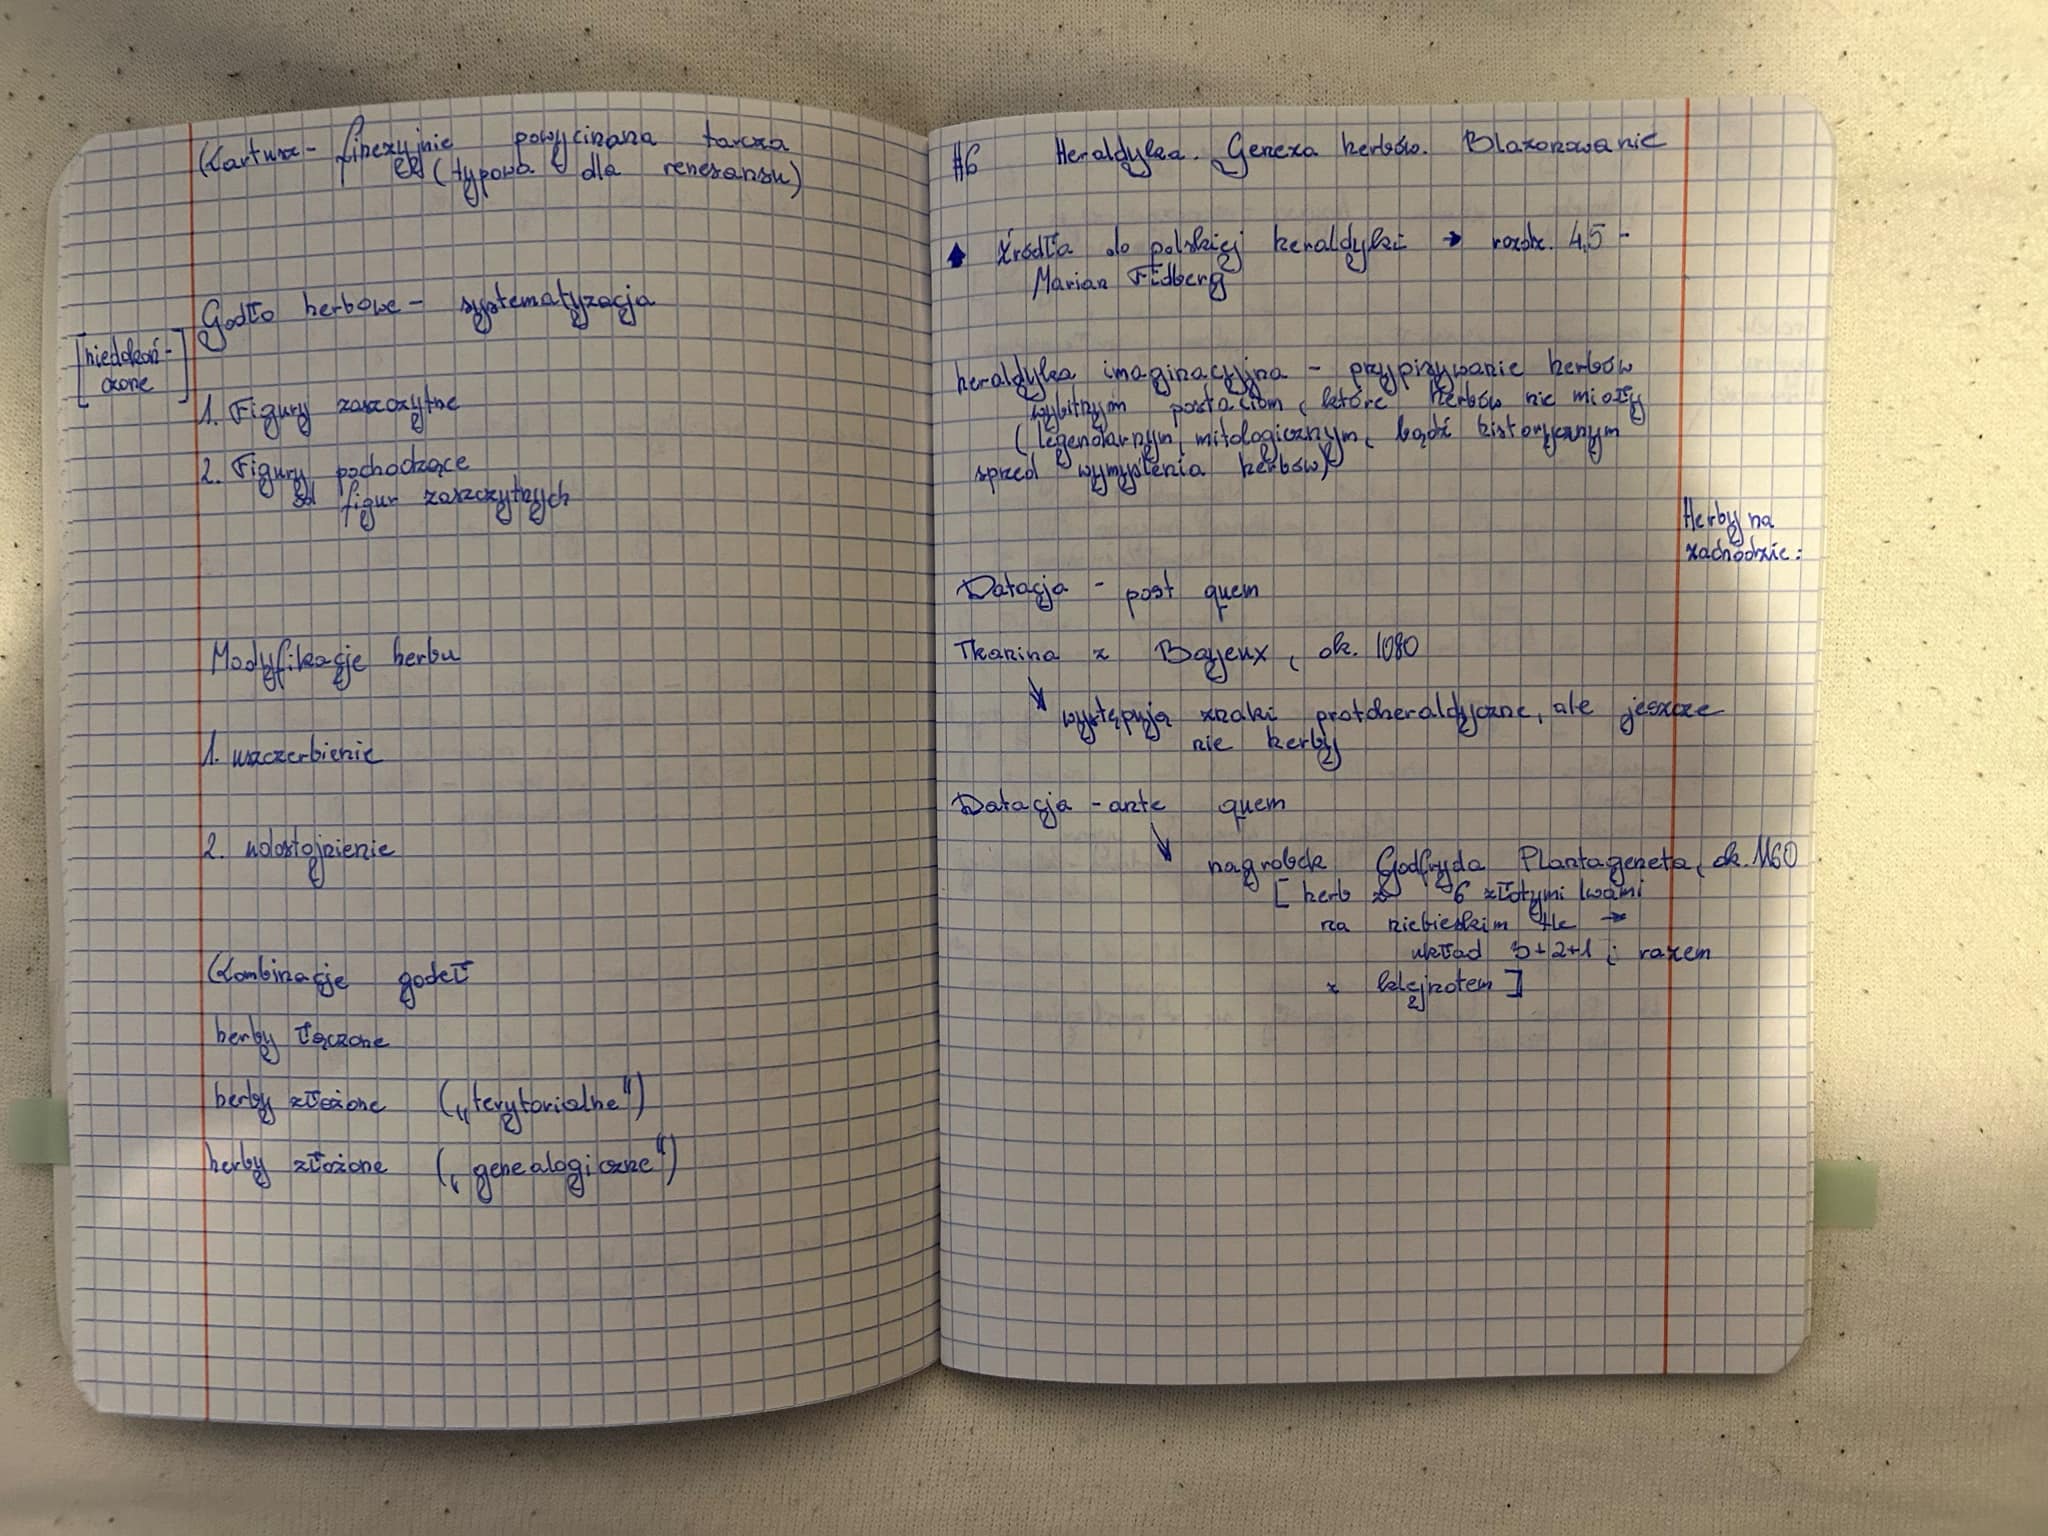 Kartusz - finezyjnie powycinana tarcza
(typowa dla renesansu)
Godło herbowe - systematyzacja
[niedokoń-
czone]
1. Figury zaszczytne
2. Figury pochodzące
od figur zaszczytnych
Modyfikacje herbu
1. uszczerbienie
2. udostojnienie
Kombinacje godeł
herby łączone
herby złożone („terytorialne")
herby złożone („genealogiczne")
#6 Heraldyka. Geneza herbów. Blazonowanie
Źródła do polskiej heraldyki → rozdz. 4,5 -
Marian Fidberg
heraldyka imaginacyjna - przypisywanie herbów
wybitnym postaciom, które herbów nie miały
(legendarnym, mitologicznym, bądź historycznym
sprzed wymyślenia herbów)
Herby na
zachodzie:
Datacja - post quem
Tkanina z Bayeux, ok. 1080
↘ występują znaki protoheraldyczne, ale jeszcze
nie herby
Datacja - ante quem
↘ nagrobek Godfryda Plantageneta, ok. 1160
[herb z 6 złotymi lwami
na niebieskim tle →
układ 3+2+1 i razem
z klejnotem]